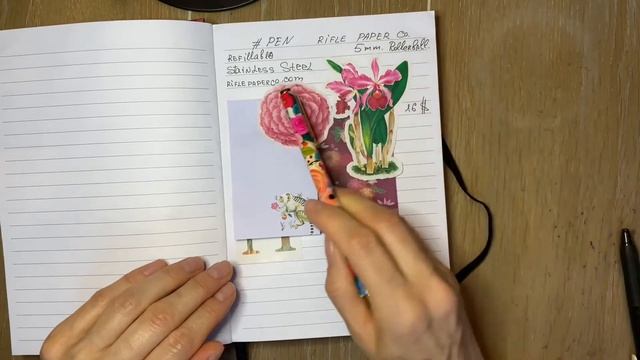 # PEN RIFLE PAPER CO.
REFILLABLE 5 mm. Rollerball.
STAINLESS STEEL
RIFLEPAPERCO.COM
16 $